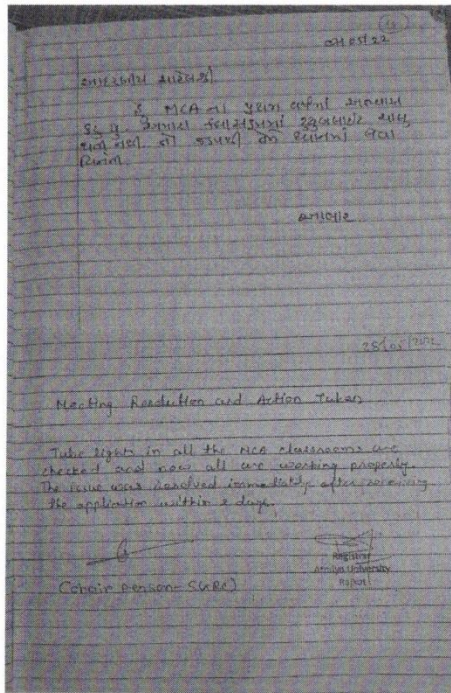 (4)
આદરણીય સાહેબશ્રી
હું MCA ના પ્રથમ વર્ષનાં અભ્યાસ
કરું છું. અમારા ક્લાસરૂમમાં ટ્યુબલાઈટ ચાલુ
થતી નથી. તો
વિનંતી
આભાર
Meeting Resolution and Action Taken
Tube lights in all the MCA classrooms are
checked and now all are working properly.
The issue was resolved immediately after receiving
the application within 2 days.
(Chair person-SGRC)
Registrar
Atmiya University
Rajkot